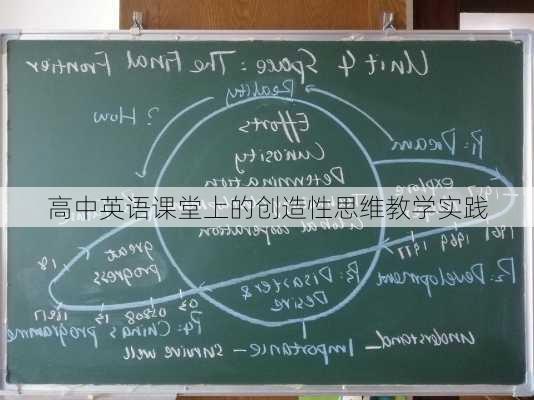 Unit 4 Space: The Final Frontier
Reality
? How
Efforts
P1: Dream
Curiosity
Determination
explore
1957
高中英语课堂上的创造性思维教学实践
Global cooperation
great
progress
1961
1969
1971
P3: Disaster &
Desire
P2: Development
03
05&08
13
16&17
18
P4: China's programme
Importance
understand
survive well